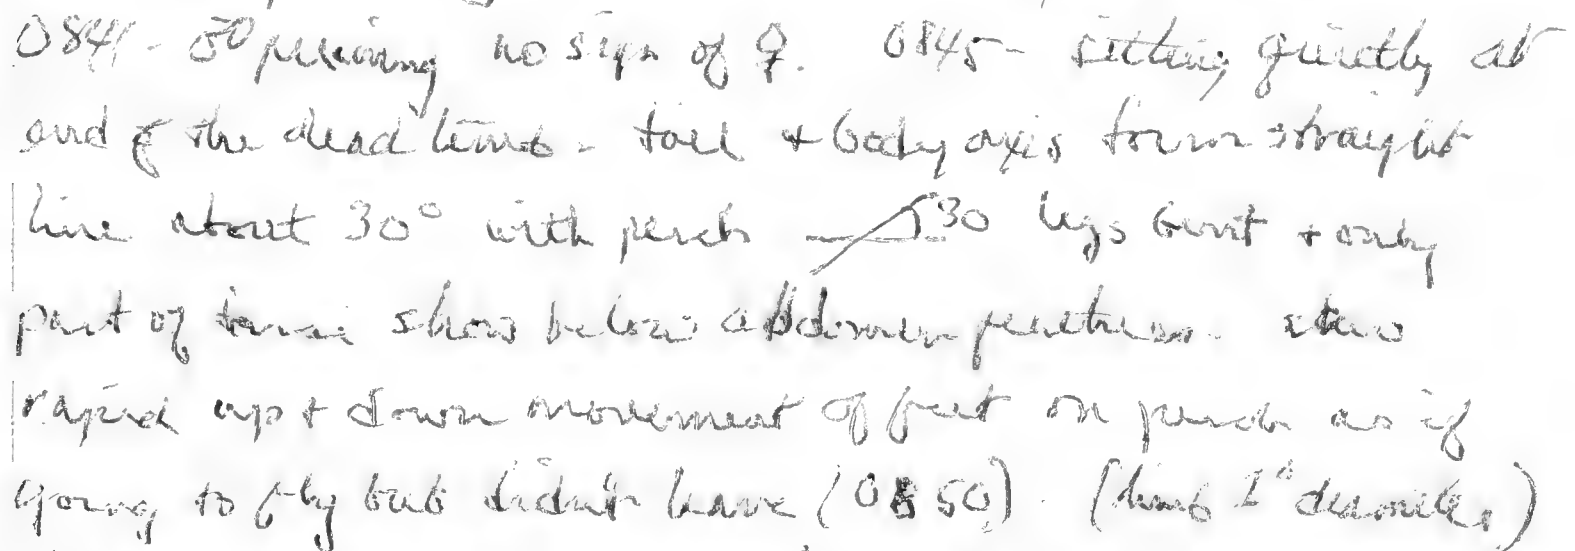 0841 - preening no sign of ♀. 0845 - sitting quietly at
end of the dead limb - tail + body axis form straight
line about 30° with perch 30 legs bent + only
part of tarsi show below abdomen feathers.
rapid up + down movement of feet on perch as if
going to fly but didn't leave (0850). (limb 1" diameter)